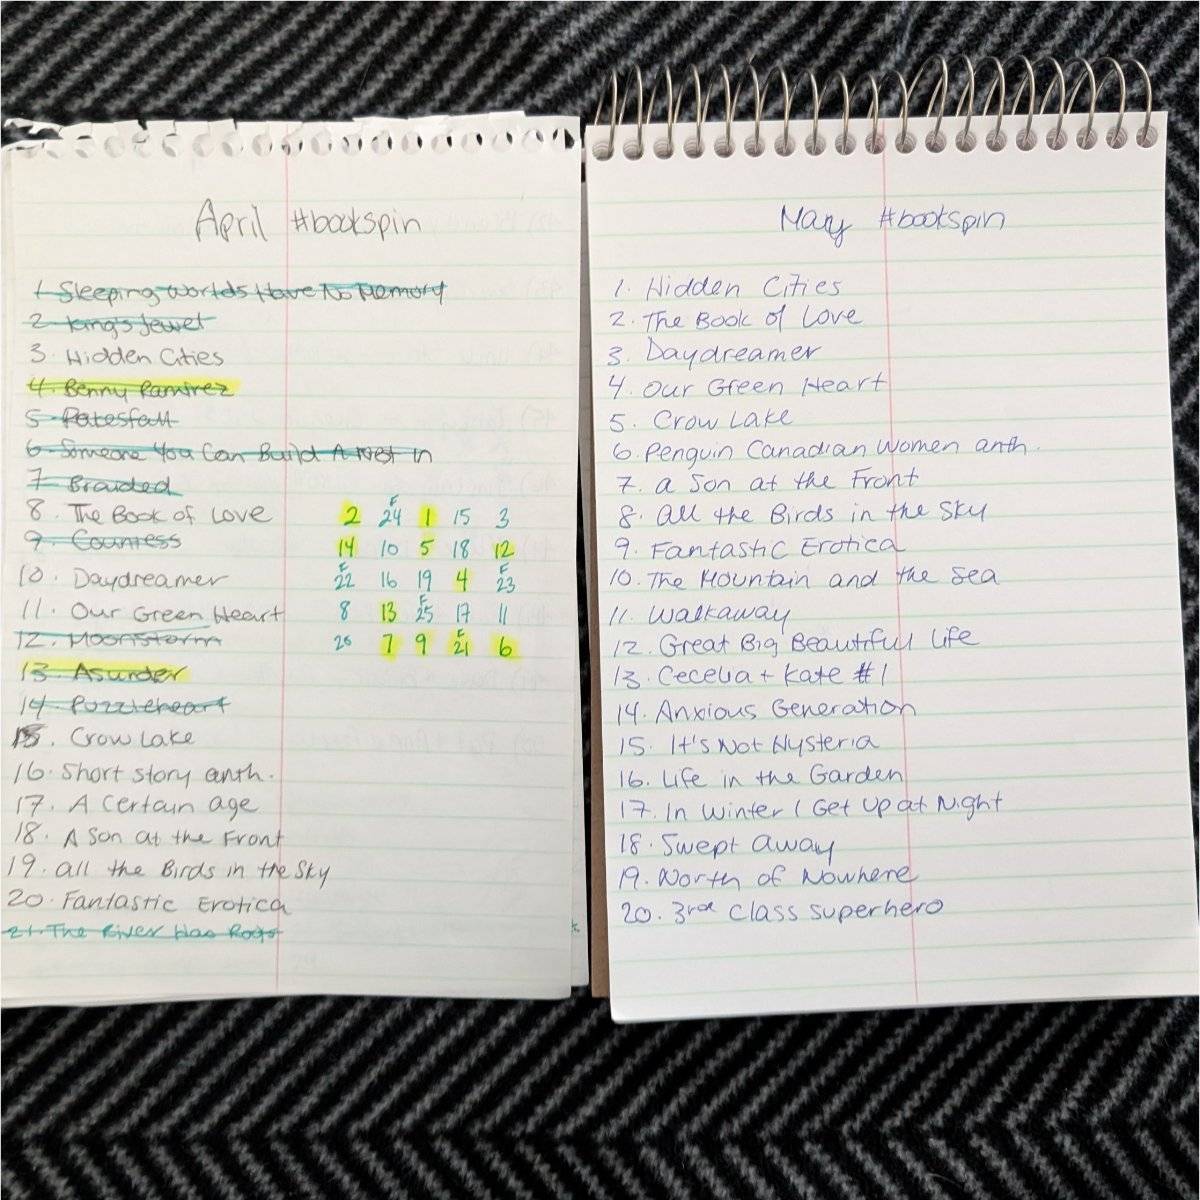 April #bookspin
1. Sleeping Worlds Have No Memory
2. King's Jewel
3. Hidden Cities
4. Benny Ramirez
5. Fatesfall
6. Someone You Can Build A Nest In
7. Braided
8. The Book of Love
9. Countess
10. Daydreamer
11. Our Green Heart
12. Moonstorm
13. Asunder
14. Puzzleheart
15. Crow Lake
16. Short story anth.
17. A Certain age
18. A Son at the Front
19. all the Birds in the Sky
20. Fantastic Erotica
21. The River Has Roots
2 F24 1 15 3
14 10 5 18 12
F22 16 19 4 F23
8 13 F25 17 11
20 7 9 F21 6
May #bookspin
1. Hidden Cities
2. The Book of Love
3. Daydreamer
4. Our Green Heart
5. Crow Lake
6. Penguin Canadian Women anth.
7. a Son at the Front
8. all the Birds in the Sky
9. Fantastic Erotica
10. The Mountain and the Sea
11. Walkaway
12. Great Big Beautiful Life
13. Cecelia + Kate #1
14. Anxious Generation
15. It's Not Hysteria
16. Life in the Garden
17. In Winter I Get Up at Night
18. Swept away
19. North of Nowhere
20. 3rd Class Superhero